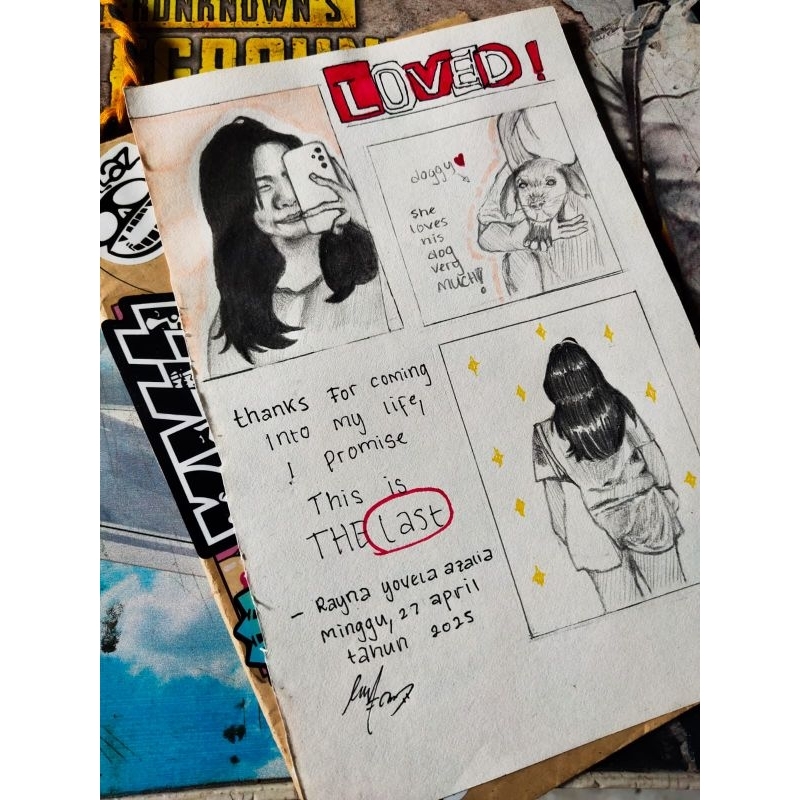 UNKNOWN'S
LOVED!
doggy
she
loves
his
dog
very
MUCH!
thanks For coming
Into my life,
I promise
This is
THE Last
- Rayna yovela azalia
minggu, 27 april
tahun 2025